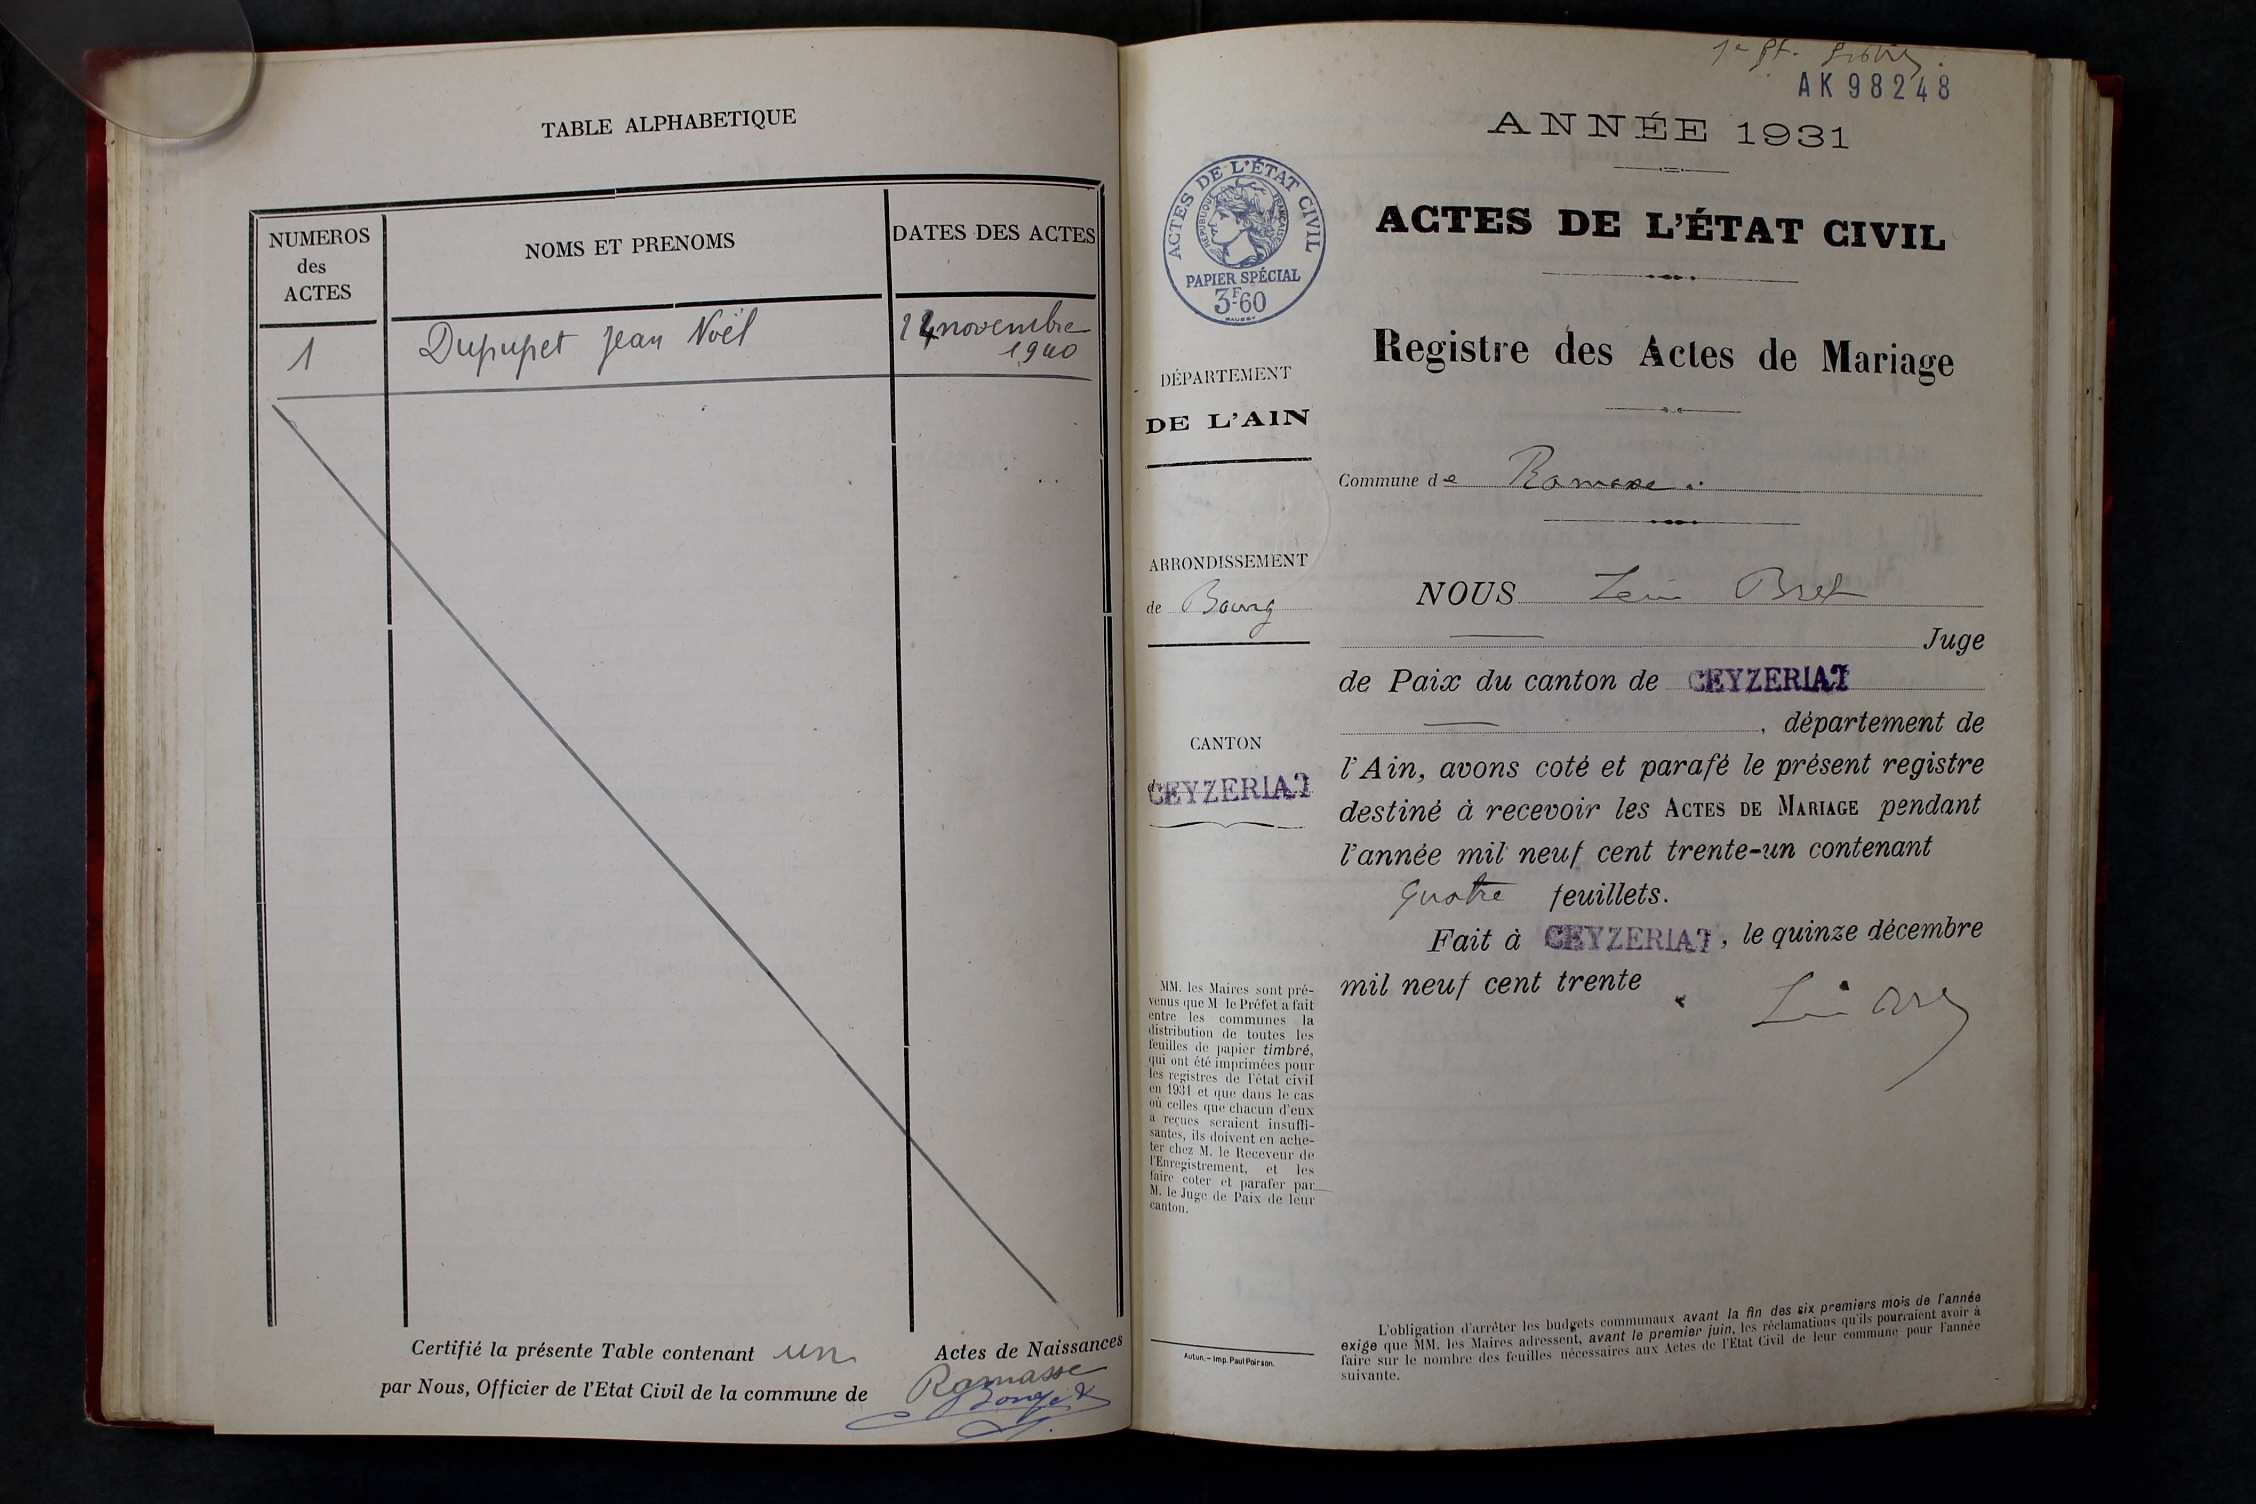 TABLE ALPHABETIQUE
NUMEROS
des
ACTES
NOMS ET PRENOMS
DATES DES ACTES
1
Dupupet Jean Noël
novembre
1940
Certifié la présente Table contenant un Actes de Naissances
par Nous, Officier de l'Etat Civil de la commune de Ramasse
AK 98248
ANNÉE 1931
ACTES DE L'ÉTAT CIVIL
RÉPUBLIQUE FRANÇAISE
PAPIER SPÉCIAL
3F60
ACTES DE L'ÉTAT CIVIL
Registre des Actes de Mariage
DÉPARTEMENT
DE L'AIN
Commune de Ramasse
ARRONDISSEMENT
de Bourg
NOUS Léon Bret
Juge
de Paix du canton de CEYZERIAT
, département de
CANTON
de CEYZERIAT
l'Ain, avons coté et parafé le présent registre
destiné à recevoir les ACTES DE MARIAGE pendant
l'année mil neuf cent trente-un contenant
quatre feuillets.
Fait à CEYZERIAT, le quinze décembre
mil neuf cent trente
MM. les Maires sont pré-
venus que M le Préfet a fait
entre les communes la
distribution de toutes les
feuilles de papier timbré,
qui ont été imprimées pour
les registres de l'état civil
en 1931 et que dans le cas
où celles que chacun d'eux
a reçues seraient insuffi-
santes, ils doivent en ache-
ter chez M. le Receveur de
l'Enregistrement, et les
faire coter et parafer par
M. le Juge de Paix de leur
canton.
Autun. - Imp. Paul Poirson.
L'obligation d'arrêter les budgets communaux avant la fin des six premiers mois de l'année
exige que MM. les Maires adressent, avant le premier juin, les réclamations qu'ils pourraient avoir à
faire sur le nombre des feuilles nécessaires aux Actes de l'Etat Civil de leur commune pour l'année
suivante.